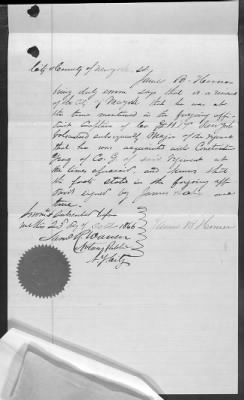 City & County of New York ss.
James B. Horner
being duly sworn says that he is a resident
of the City of New York that he was at
the time mentioned in the foregoing affi-
davit Captain of Co.
Volunteers subsequently Major of the regiment
that he was acquainted with
Gray of Co. G of said regiment at
the time aforesaid, and knows that
the facts stated in the foregoing affi-
davit signed by James are
true.
Sworn & subscribed before
me this 23 day of 1866 James B. Horner
Notary Public
N.Y. City